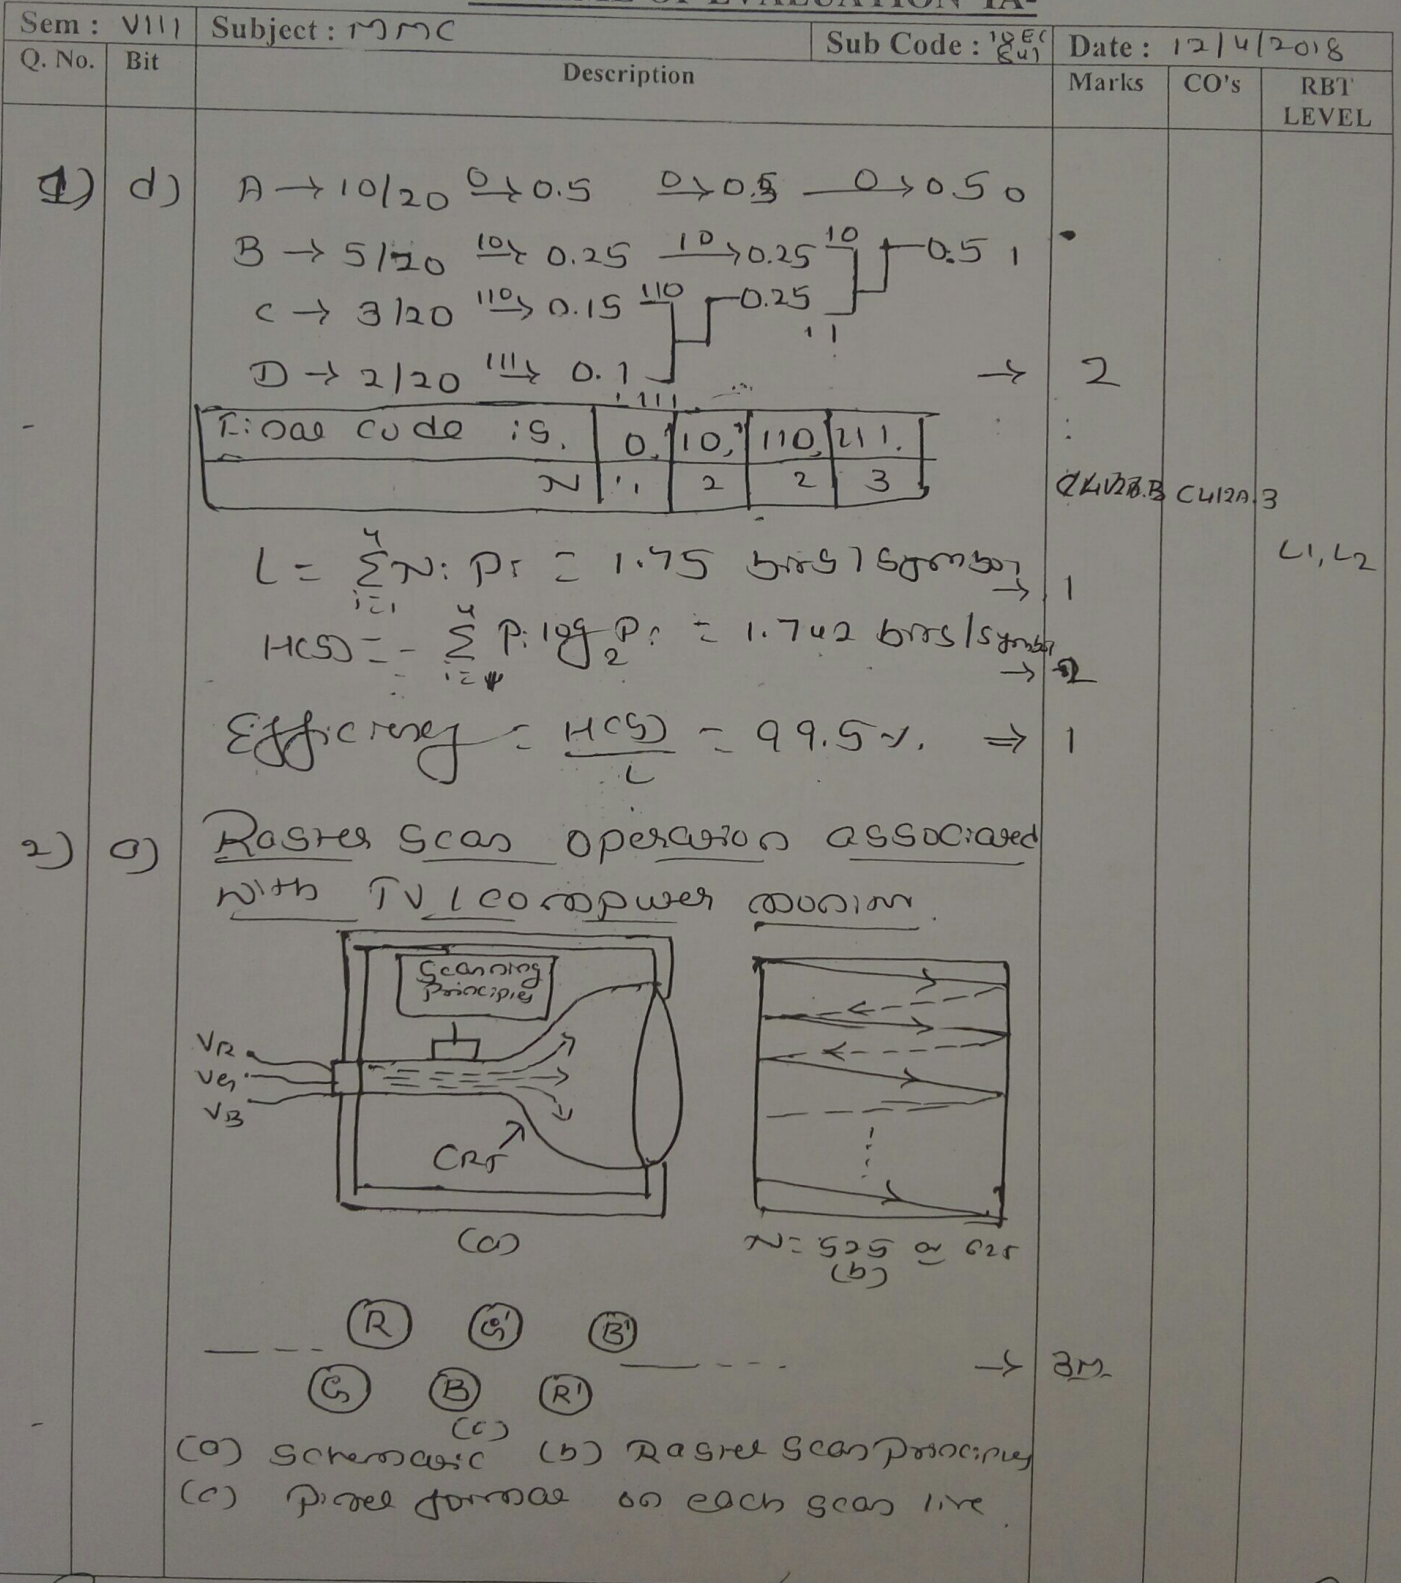 EVALUATION IA-
Sem : VIII Subject : MMC Sub Code : 10EC841 Date : 12/4/2018
Q. No. Bit Description Marks CO's RBT LEVEL
1) d) A → 10/20 0→ 0.5 0→ 0.5 0→ 0.5 0
B → 5/20 10→ 0.25 10→ 0.25 10 0.5 1
C → 3/20 110→ 0.15 110 0.25 11
D → 2/20 111→ 0.1 111 → 2
Final code is. 0, 10, 110, 111.
N 1 2 2 3
C412A.3
L1, L2
L = Σ Ni Pi = 1.75 bits/symbol → 1
i=1 4
H(S) = - Σ Pi log2 Pi = 1.742 bits/symbol → 2
Efficiency = H(S)/L = 99.5%. ⇒ 1
2) a) Raster scan operation associated
with TV/computer monitor.
Scanning
Principles
VR
VG
VB
CRT
(a)
N = 525 or 625
(b)
R G' B'
→ 3M
G B R'
(c)
(a) Schematic (b) Raster Scan Principles
(c) Pixel format on each scan line.